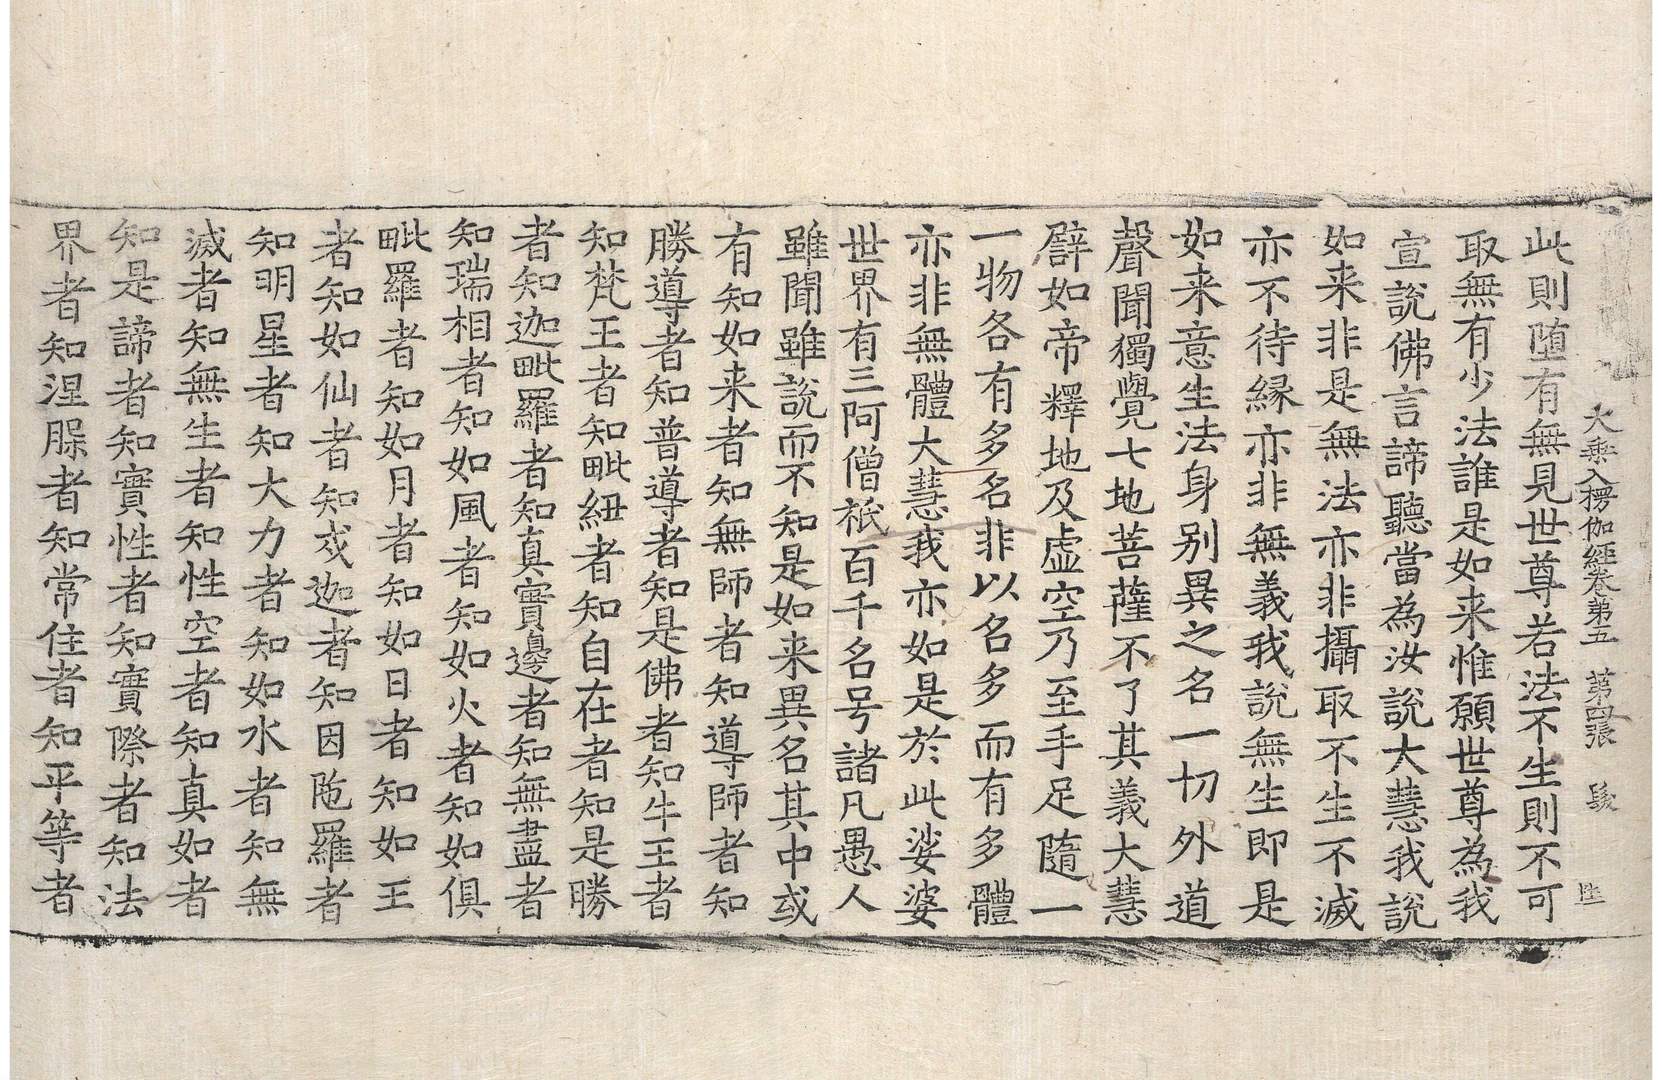 大乘入楞伽經卷第五 第四張 髮
此則墮有無見世尊若法不生則不可
取無有少法誰是如来惟願世尊為我
宣說佛言諦聽當為汝說大慧我說
如来非是無法亦非攝取不生不滅
亦不待緣亦非無義我說無生即是
如来意生法身別異之名一切外道
聲聞獨覺七地菩薩不了其義大慧
譬如帝釋地及虛空乃至手足隨一
一物各有多名非以名多而有多體
亦非無體大慧我亦如是於此娑婆
世界有三阿僧祇百千名号諸凡愚人
雖聞雖說而不知是如来異名其中或
有知如来者知無師者知導師者知
勝導者知普導者知是佛者知牛王者
知梵王者知毗紐者知自在者知是勝
者知迦毗羅者知真實邊者知無盡者
知瑞相者知如風者知如火者知如俱
毗羅者知如月者知如日者知如王
者知如仙者知戍迦者知因陁羅者
知明星者知大力者知如水者知無
滅者知無生者知性空者知真如者
知是諦者知實性者知實際者知法
界者知涅槃者知常住者知平等者